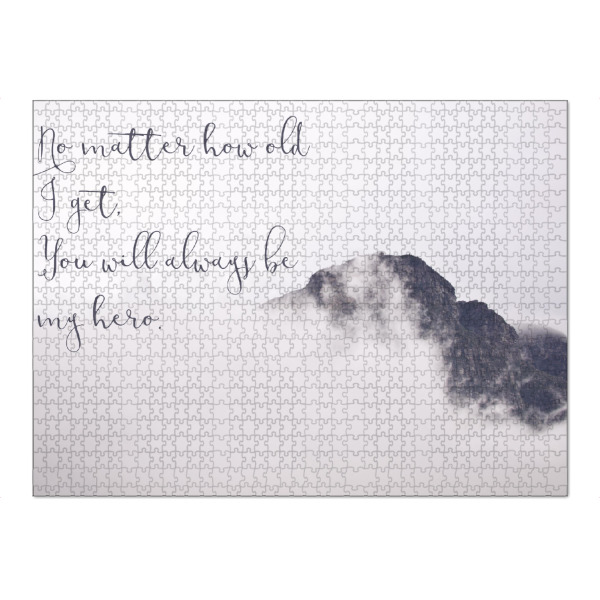 No matter how old
I get,
You will always be
my hero.